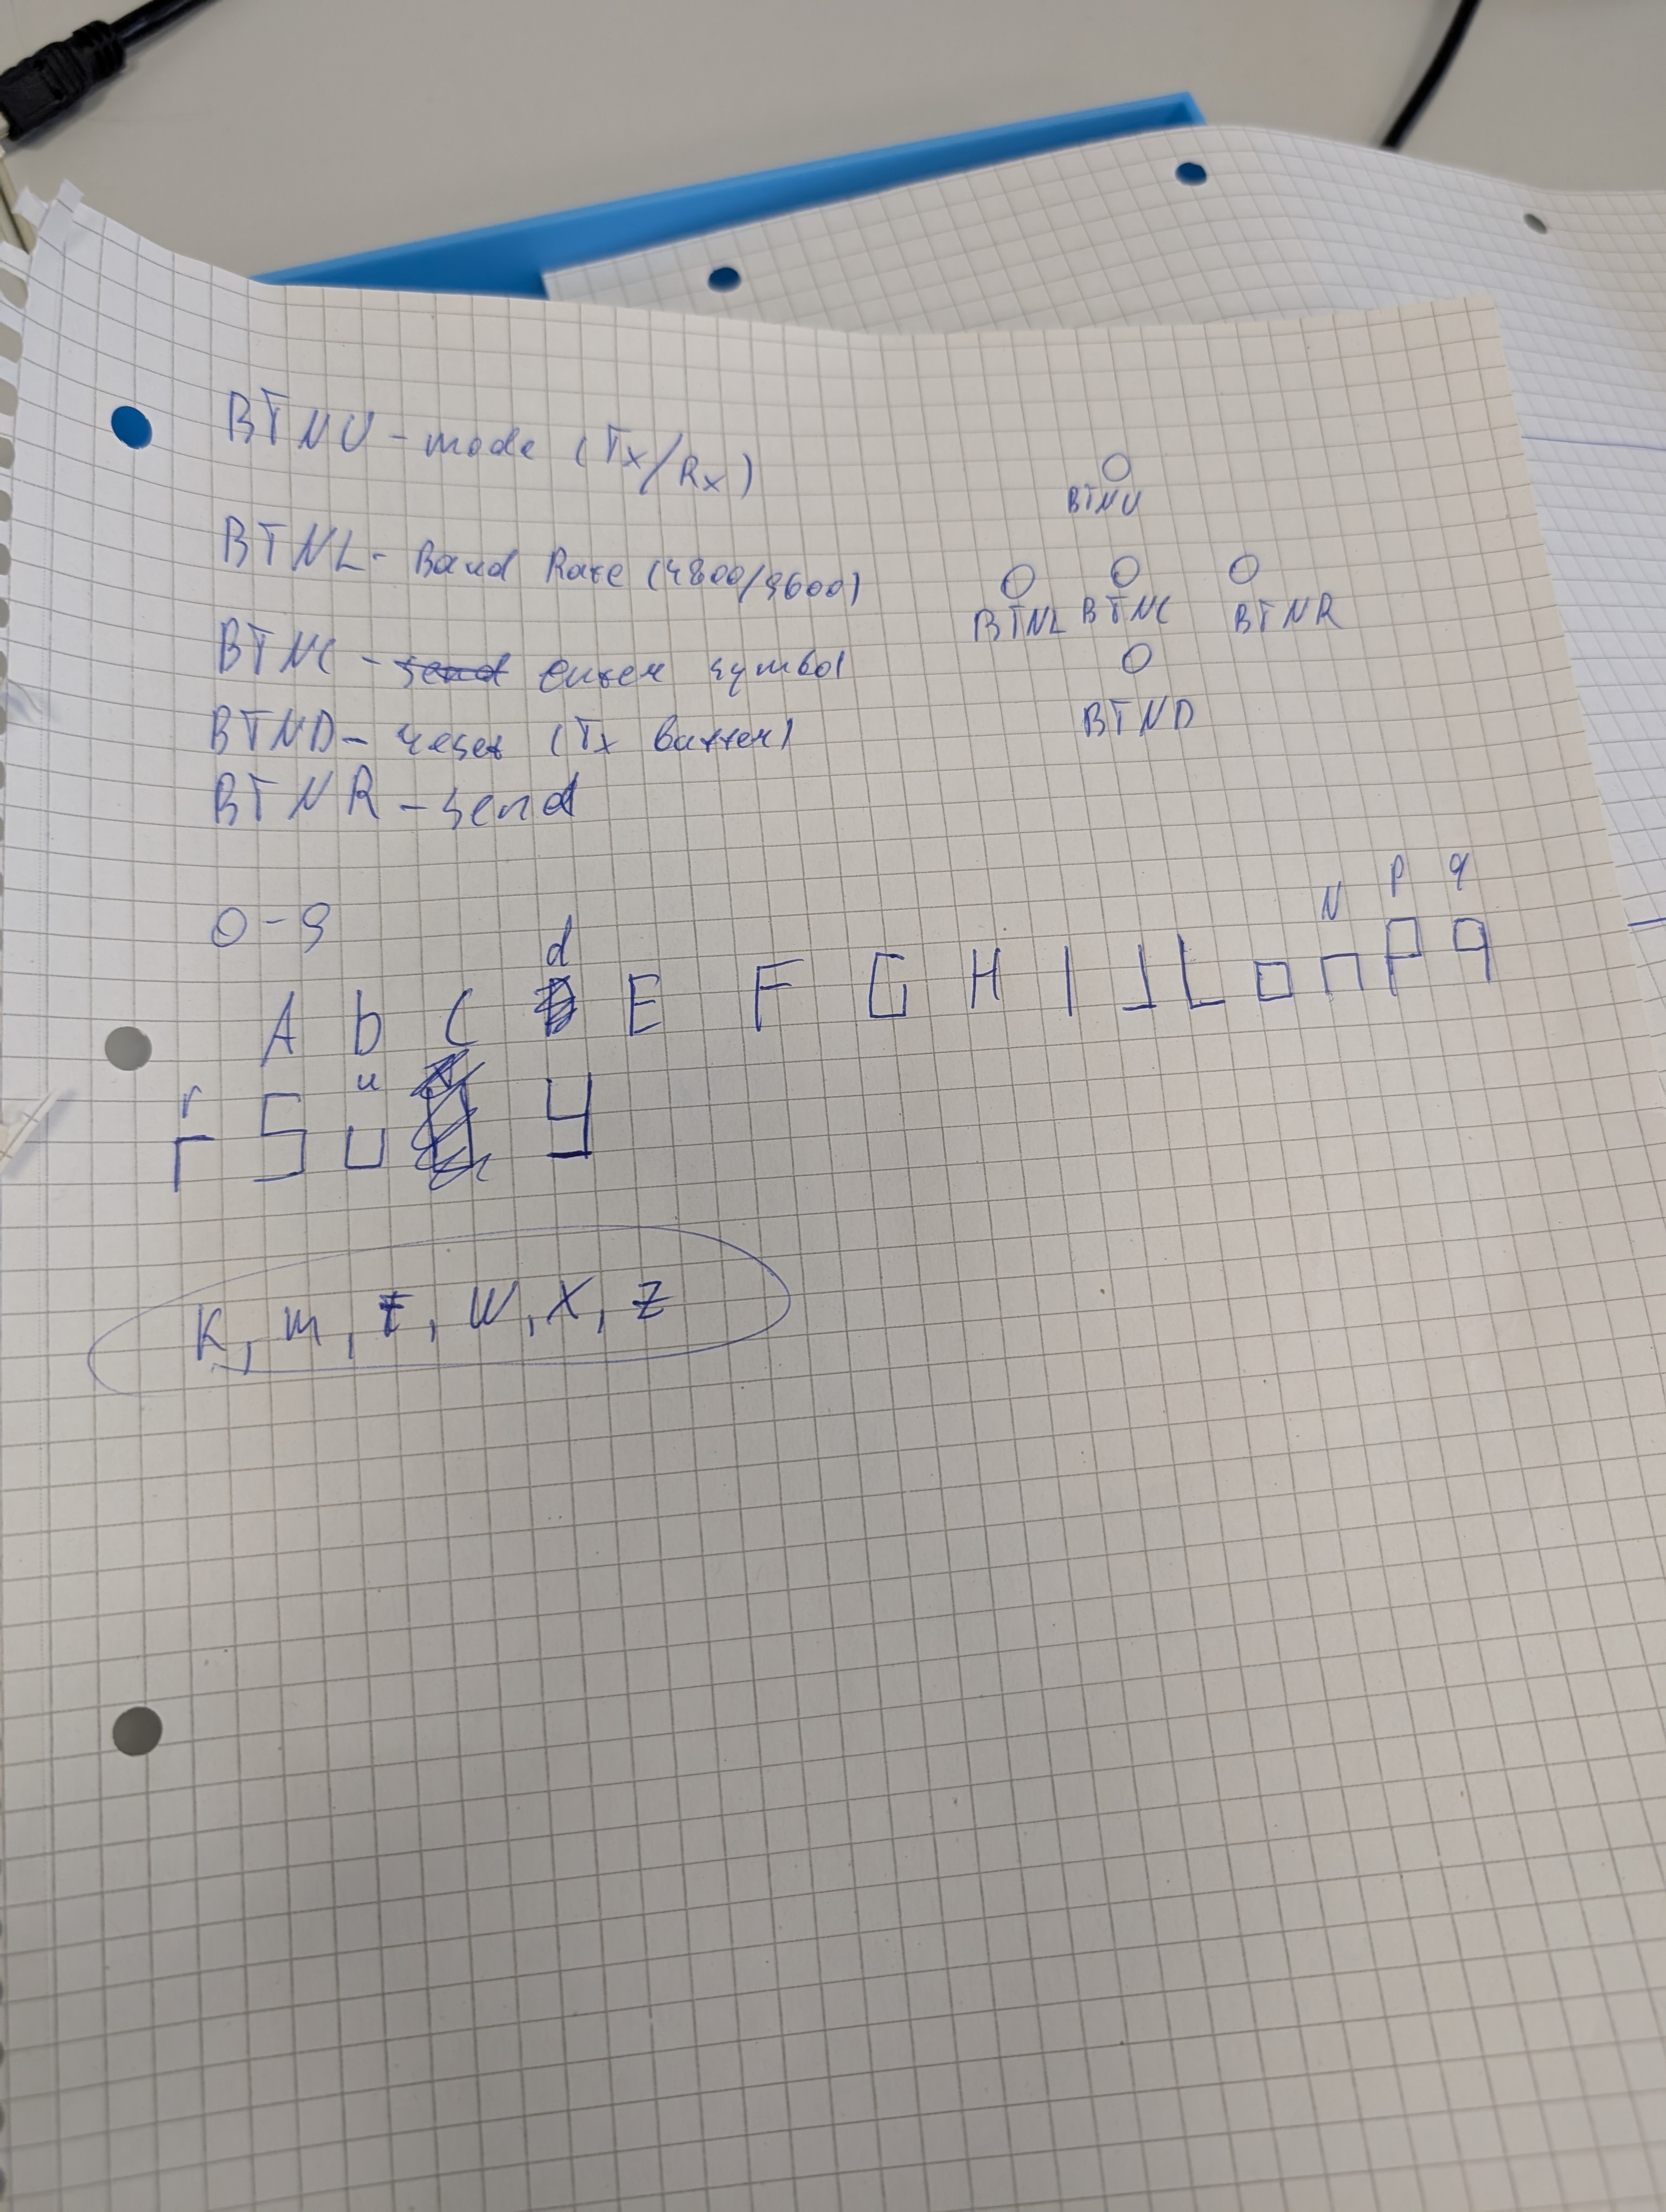 BTNU - mode (Tx/Rx)
BTNL - Baud Rate (4800/9600)
BTNC - send enter symbol
BTND - reset (Tx buffer)
BTNR - send
BTNU
BTNL BTNC BTNR
BTND
0-9
d N P q
A b C E F G H I J L o n P q
r u
r S u y
K, m, t, W, X, Z